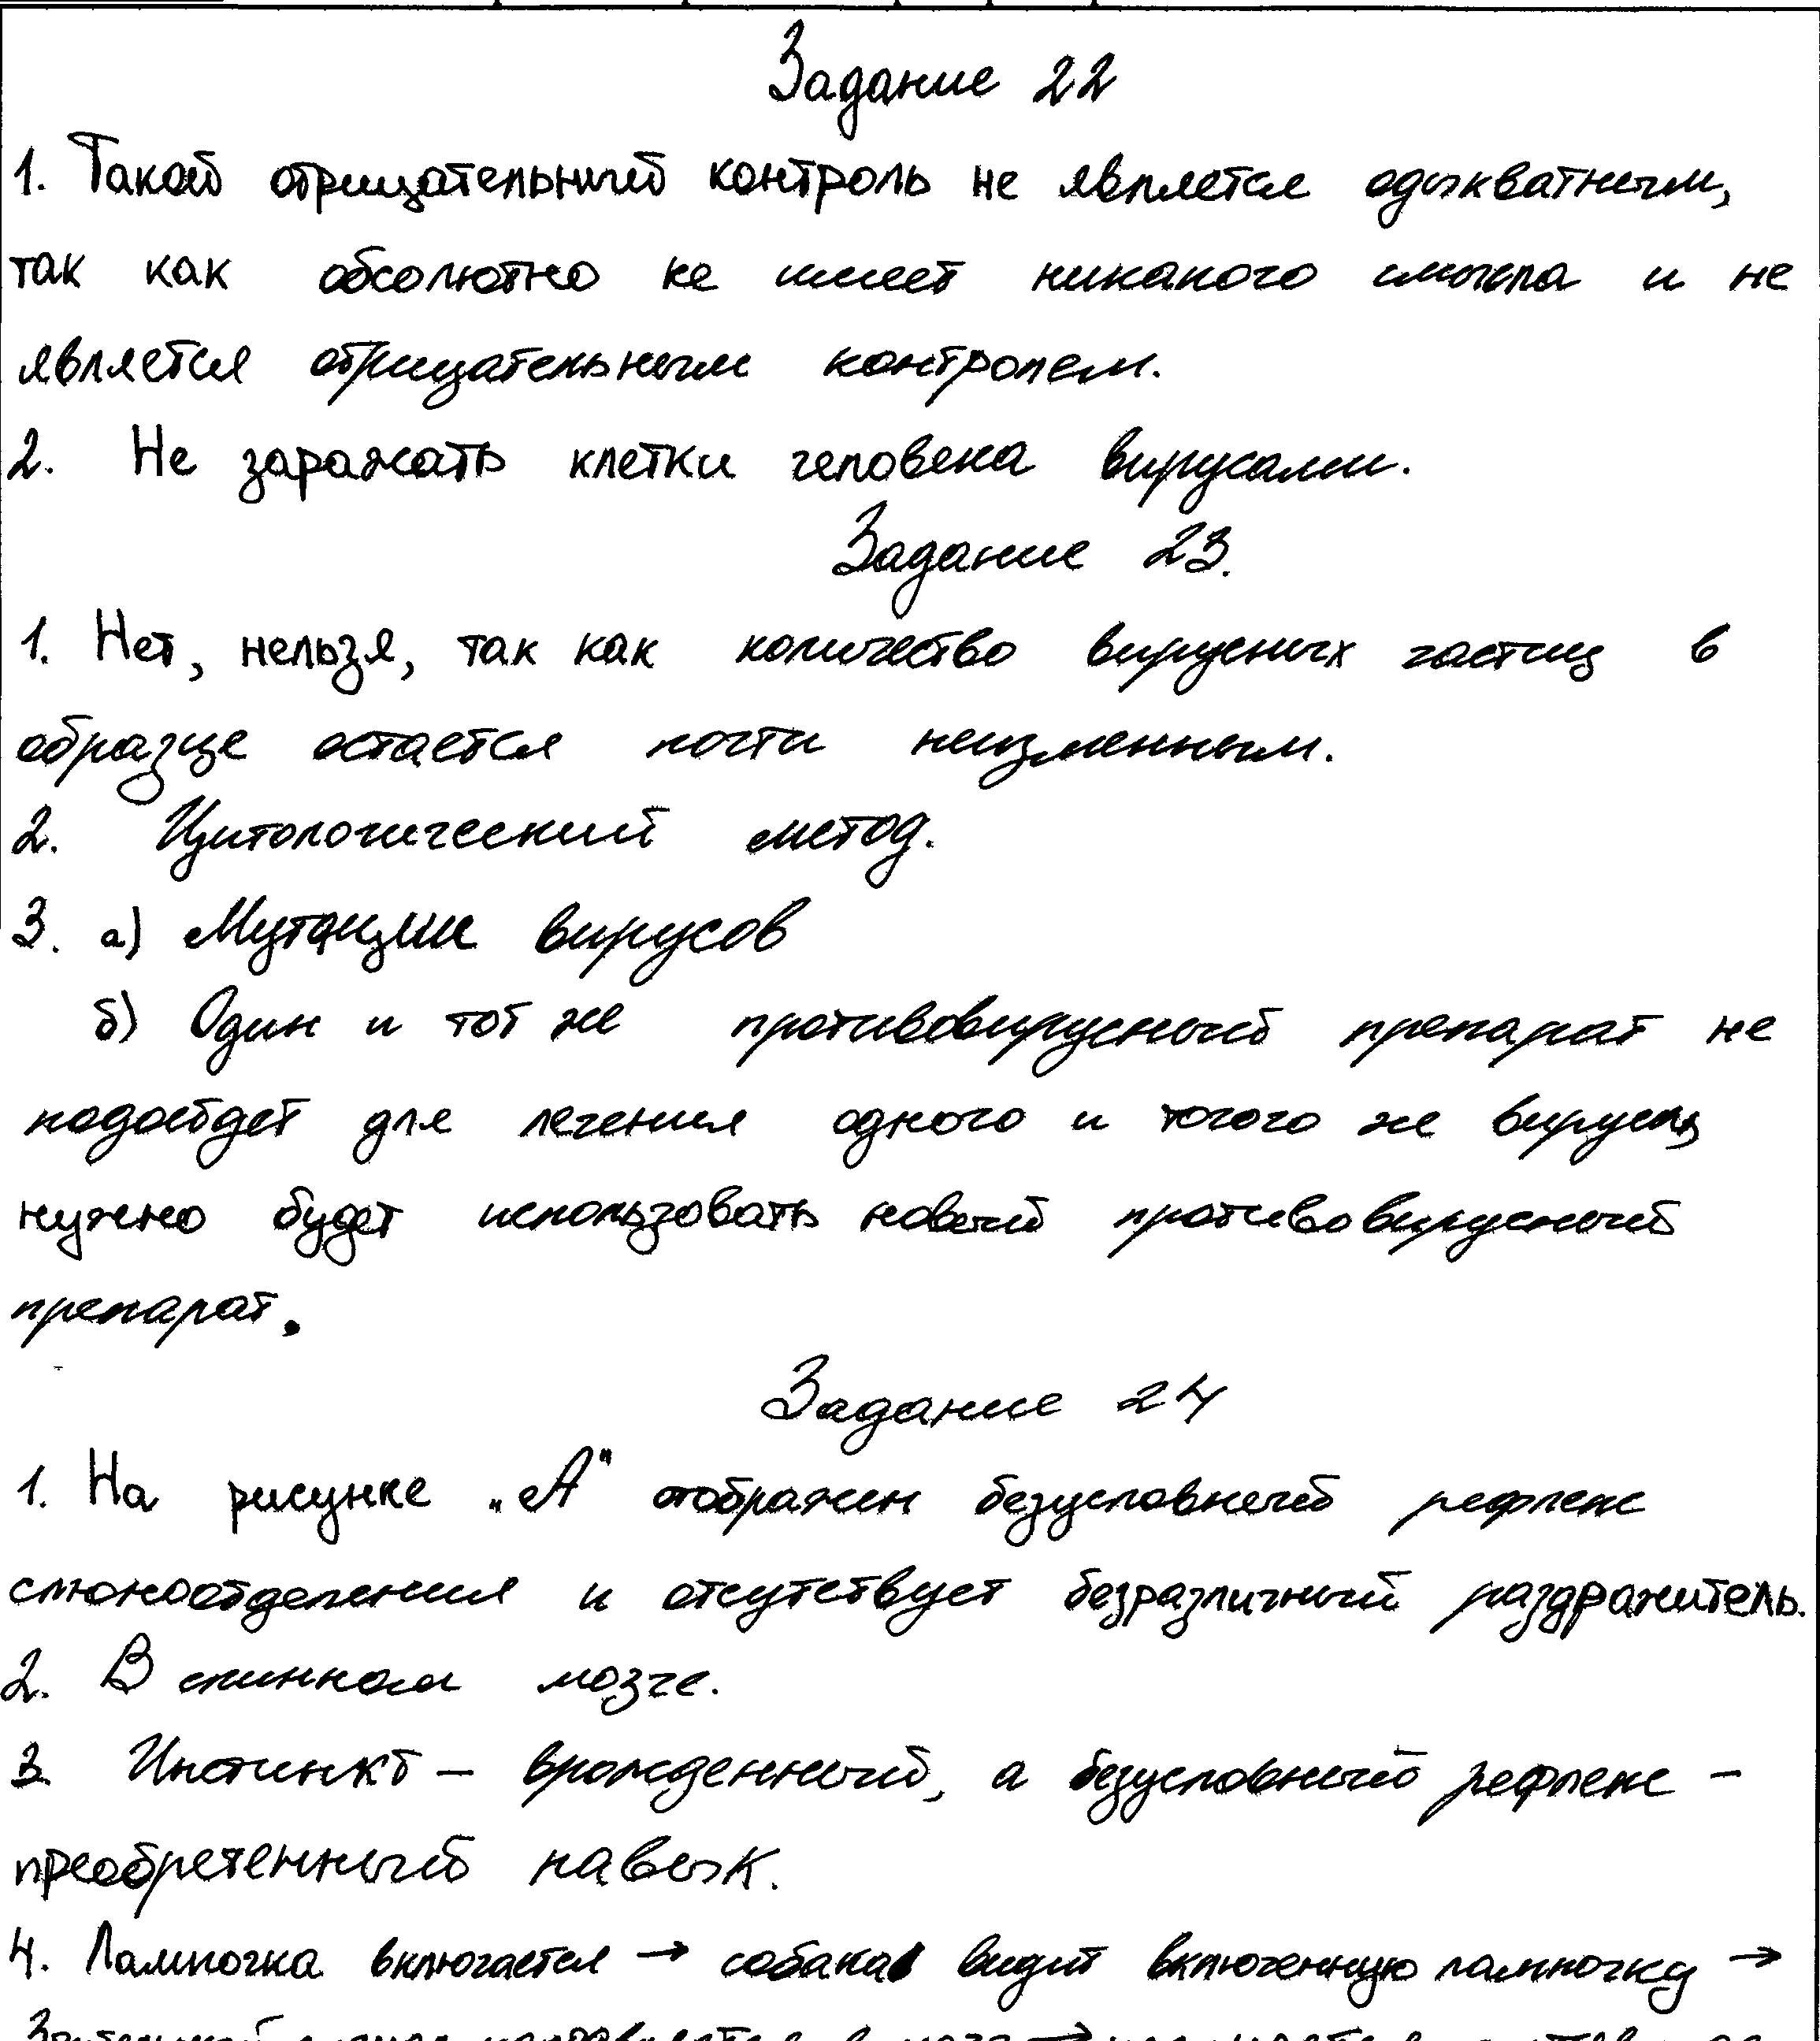 Задание 22
1. Такой отрицательный контроль не является адыкватным,
так как абсолютно не имеет никакого смысла и не
является отрицательным контролем.
2. Не заражать клетки человека вирусами.
Задание 23.
1. Нет, нельзя, так как количество вирусных частиц в
образце остается почти неизменным.
2. Цитологический метод.
3. а) Мутации вирусов
б) Один и тот же противовирусный препарат не
подойдет для лечения одного и тогого же вируса,
нужно будет использовать новый противовирусный
препарат.
Задание 24
1. На рисунке „А" отображен безусловный рефлекс
слюноотделения и отсутствует безразличный раздражитель.
2. В спинном мозге.
3. Инстинкт – врожденный, а безусловный рефлекс –
преобретенный навык.
4. Лампочка включается → собака видит включенную лампочку →